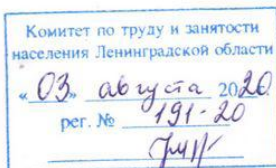 Комитет по труду и занятости
населения Ленинградской области
«03» августа 2020
рег. № 191-20